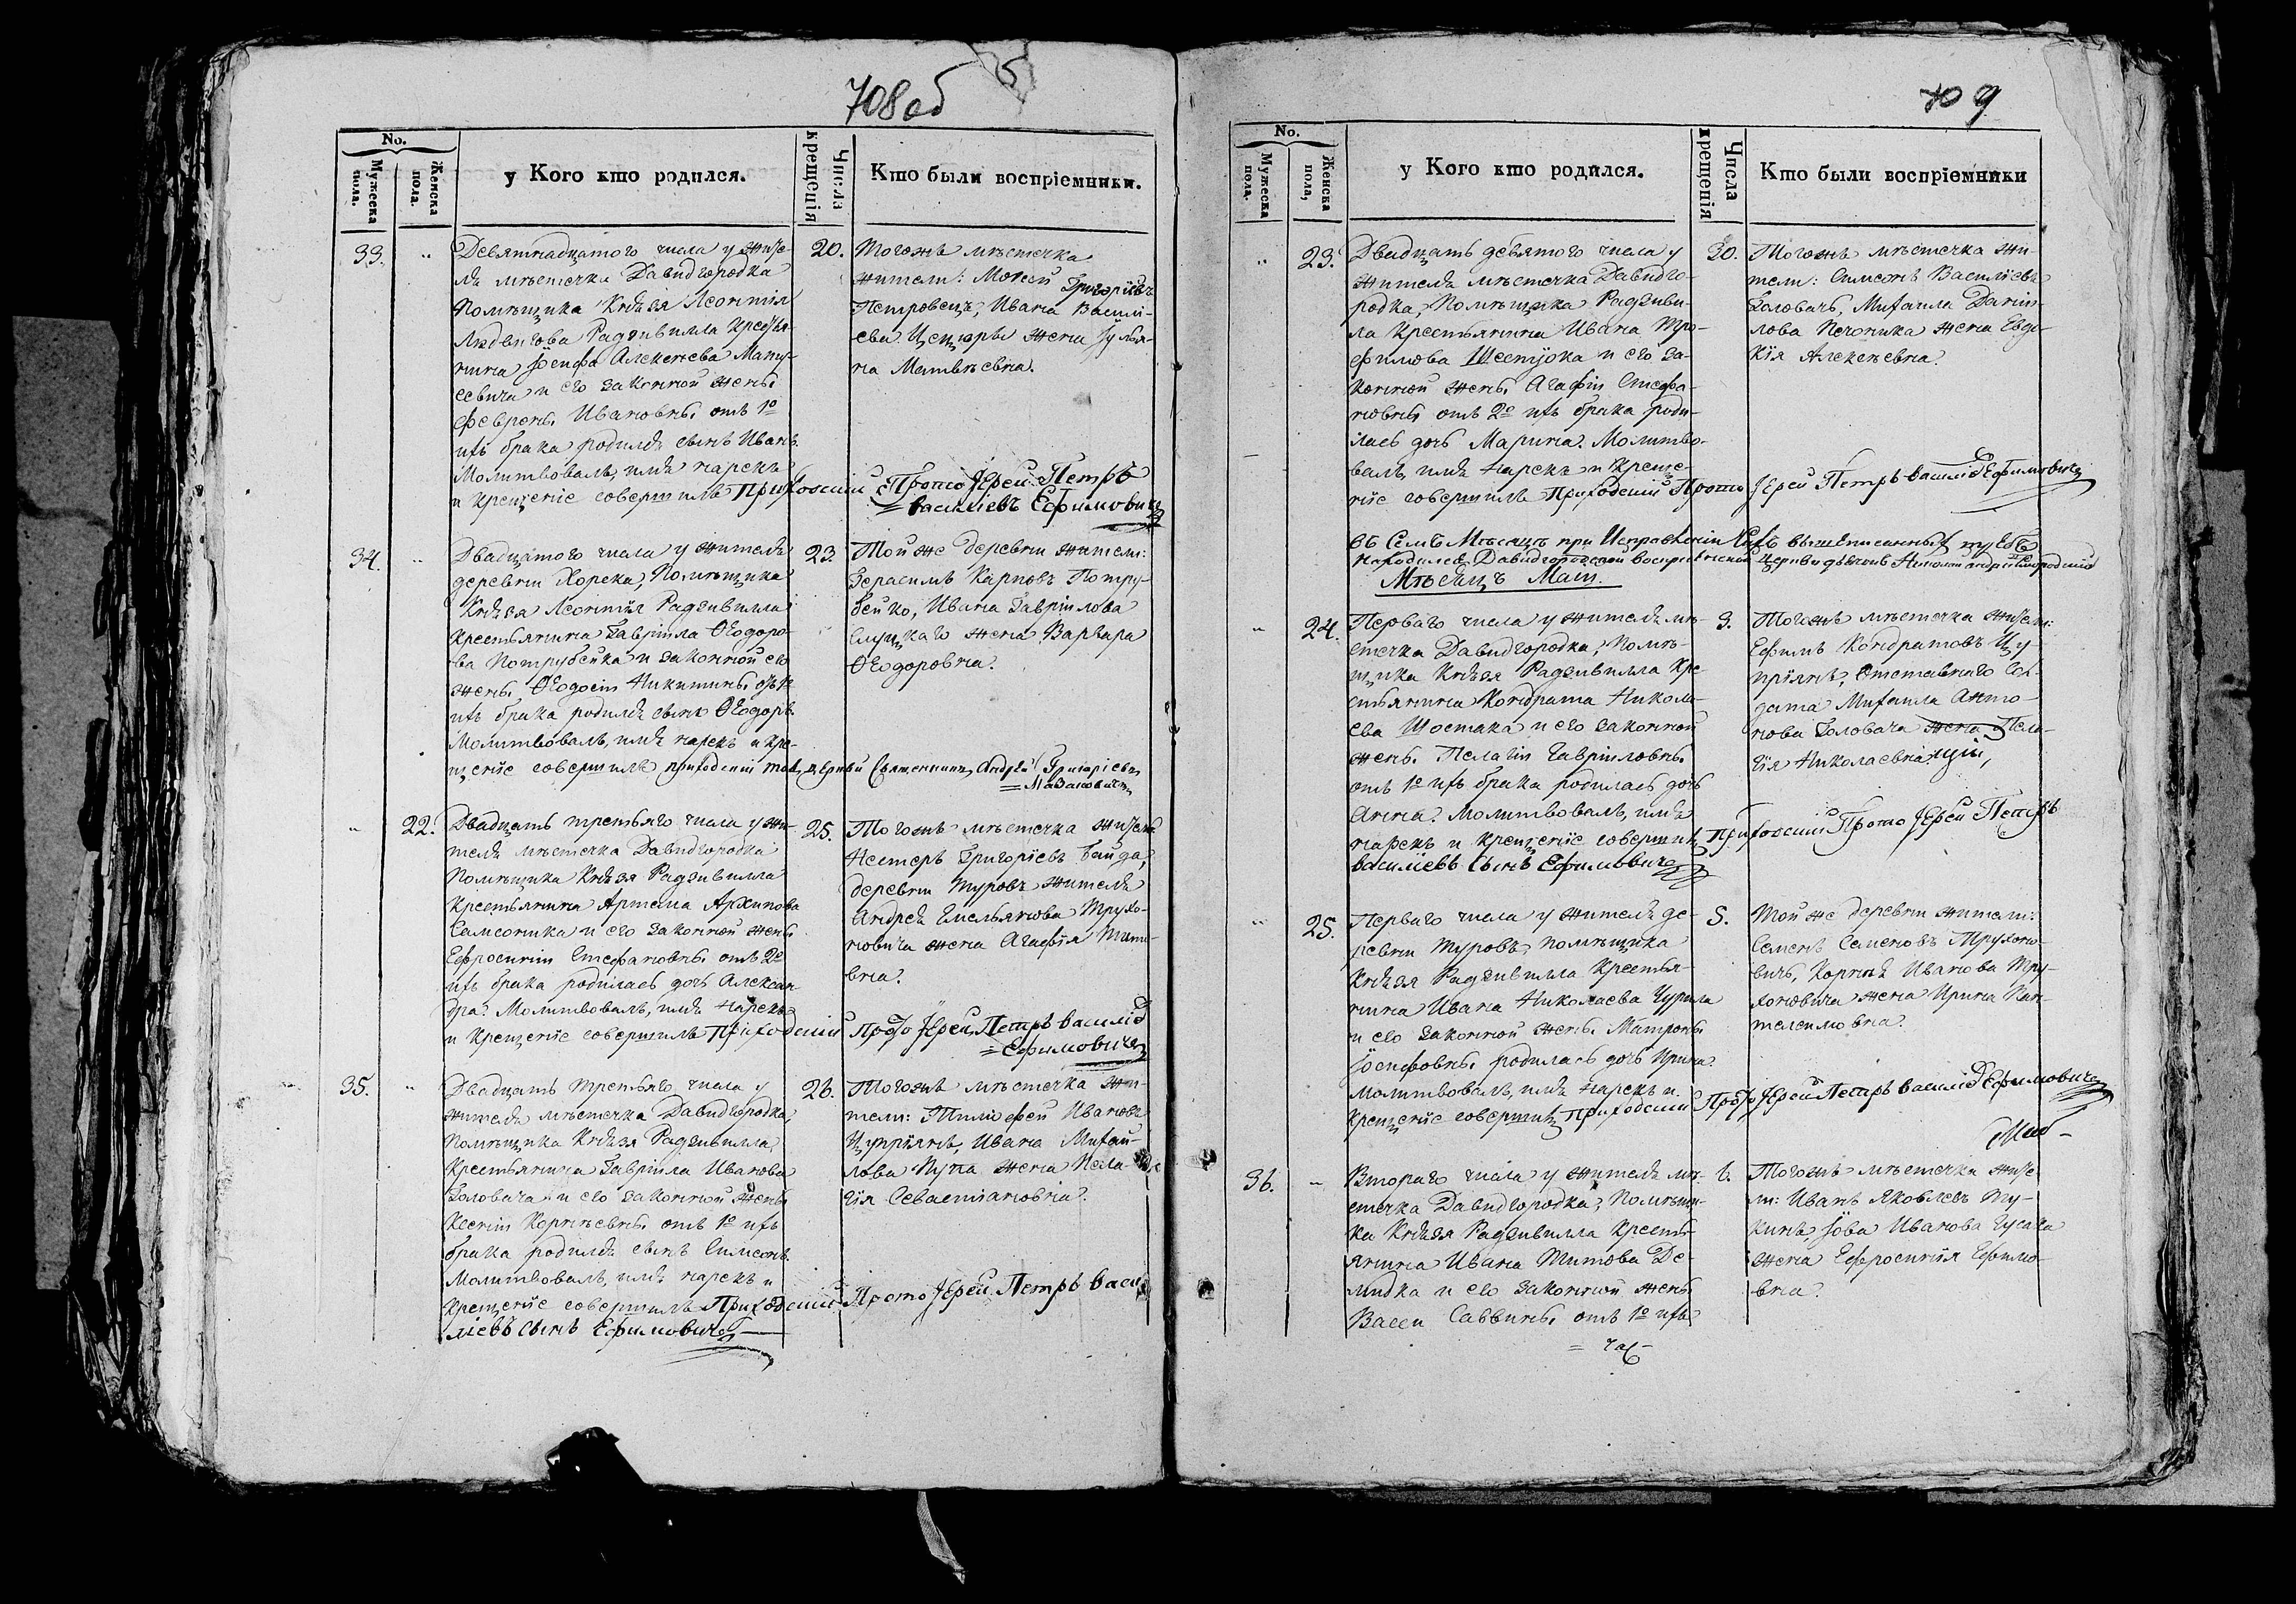 708 об
No.
Мужеска пола.
Женска пола.
у Кого кто родился.
Числа крещенія
Кто были воспріемники.
33. " Девятнадцатого числа у жите-
ля мѣстечка Давидгородка
Помѣщика Князя Леонтія
Людвигова Радзивилла крестья-
нина Іосифа Алексѣева Мату-
севича и его законной жены
Февроны Ивановны отъ 1го
ихъ брака родился сынъ Иванъ.
Молитвовалъ, имя нарекъ
и крещеніе совершилъ Приходскій Протоіерей Петръ
Васиіліевъ Ефимовичъ
20. Тогожъ мѣстечка
жители: Мокей Григоріевъ
Петровецъ, Ивана Василі-
ева Цецюры жена Іулья-
на Матвѣевна.
34. " Двадцатого числа у жителя
деревни Хорска, Помѣщика
Князя Леонтія Радзивилла
крестьянина Гавріила Ѳеодоро-
ва Потрубейка и законной его
жены Ѳеодосіи Никитины отъ 1го
ихъ брака родился сынъ Ѳеодоръ.
Молитвовалъ, имя нарекъ и кре-
щеніе совершилъ приходскій Священникъ Андрей Григоріевъ
Мазановичъ
23. Той же деревни жители:
Герасимъ Карповъ Потру-
бейко, Ивана Гавріилова
Слуцкаго жена Варвара
Ѳеодоровна.
" 22. Двадцать третьяго числа у жи-
теля мѣстечка Давидгородка
Помѣщика Князя Радзивилла
крестьянина Артема Архипова
Самсоника и его законной жены
Ефросиніи Стефановны отъ 2го
ихъ брака родилась дочь Алексан-
дра. Молитвовалъ, имя нарекъ
и крещеніе совершилъ Приходскій Протоіерей Петръ Василіевъ
Ефимовичъ
25. Тогожъ мѣстечка жители
Нестеръ Григоріевъ Байда,
деревни Туровъ жителя
Андрея Емельянова Трухо-
новича жена Агафія Тито-
вна.
35. " Двадцать третьяго числа у
жителя мѣстечка Давидгородка,
Помѣщика Князя Радзивилла
крестьянина Гавріила Иванова
Головача и его законной жены
Ксеніи Корнѣевны отъ 1го ихъ
брака родился сынъ Симеонъ.
Молитвовалъ, имя нарекъ и
крещеніе совершилъ Приходскій Протоіерей Петръ Васи
ліевъ сынъ Ефимовичъ
26. Тогожъ мѣстечка жи-
тели: Тимофей Ивановъ
Цупріянъ, Ивана Михай-
лова Пупа жена Пела-
гія Севастіановна.
709
No.
Мужеска пола.
Женска пола,
у Кого кто родился.
Числа крещенія
Кто были воспріемники
" 23. Двадцать девятого числа у
жителя мѣстечка Давидго-
родка, Помѣщика Радзиви-
ла крестьянина Ивана Тро-
фимова Шестука и его за-
конной жены Агафіи Стефа-
новны отъ 2го ихъ брака роди-
лась дочь Марина. Молитво-
валъ, имя нарекъ и креще-
ніе совершилъ Приходскій Протоіерей Петръ Василіевъ Ефимовичъ
30. Тогожъ мѣстечка жи-
тели: Симеонъ Василіевъ
Головачъ, Михаила Дани-
лова Печоника жена Евдо-
кія Алексѣевна.
въ Семъ Мѣсяцѣ при Исправленіи Сихъ вышеписанныхъ требъ
находился Давидгородской воскресенской Церкви дьячокъ Николай
Мѣсяцъ Маій.
" 24. Перваго числа у жителя мѣ-
стечка Давидгородка, Помѣ-
щика Князя Радзивилла кре-
стьянина Кондрата Никола-
ева Шостака и его законной
жены Пелагіи Гавріиловны
отъ 1го ихъ брака родилась дочь
Анна. Молитвовалъ, имя
нарекъ и крещеніе совершилъ Приходскій Протоіерей Петръ
Василіевъ Сынъ Ефимовичъ
3. Тогожъ мѣстечка жители:
Ефимъ Кондратовъ Цу-
пріянъ, Отставнаго Сол-
дата Михаила Анто-
нова Головача жена Пела-
гія Николаевна.
" 25. Перваго числа у жителя де-
ревни Туровъ, помѣщика
Князя Радзивилла Крестья-
нина Ивана Николаева Чурила
и его законной жены Матроны
Іосифовны родилась дочь Ирина.
Молитвовалъ, имя нарекъ и
крещеніе совершилъ Приходскій Протоіерей Петръ Василіевъ Ефимовичъ
5. Той же деревни жители:
Семенъ Семеновъ Трухоно-
вичъ, Корнѣя Иванова Тру-
хоновича жена Ирина Пан-
телеимовна.
36. " Втораго числа у жителя мѣ-
стечка Давидгородка, Помѣщи-
ка Князя Радзивилла Кресть-
янина Ивана Титова Де-
мидка и его законной жены
Вассы Саввины отъ 1го ихъ
6. Тогожъ мѣстечка жите
ли: Иванъ Яковлевъ Ту-
кинъ, Іова Иванова Гусака
жена Ефросинія Ефимо-
вна.